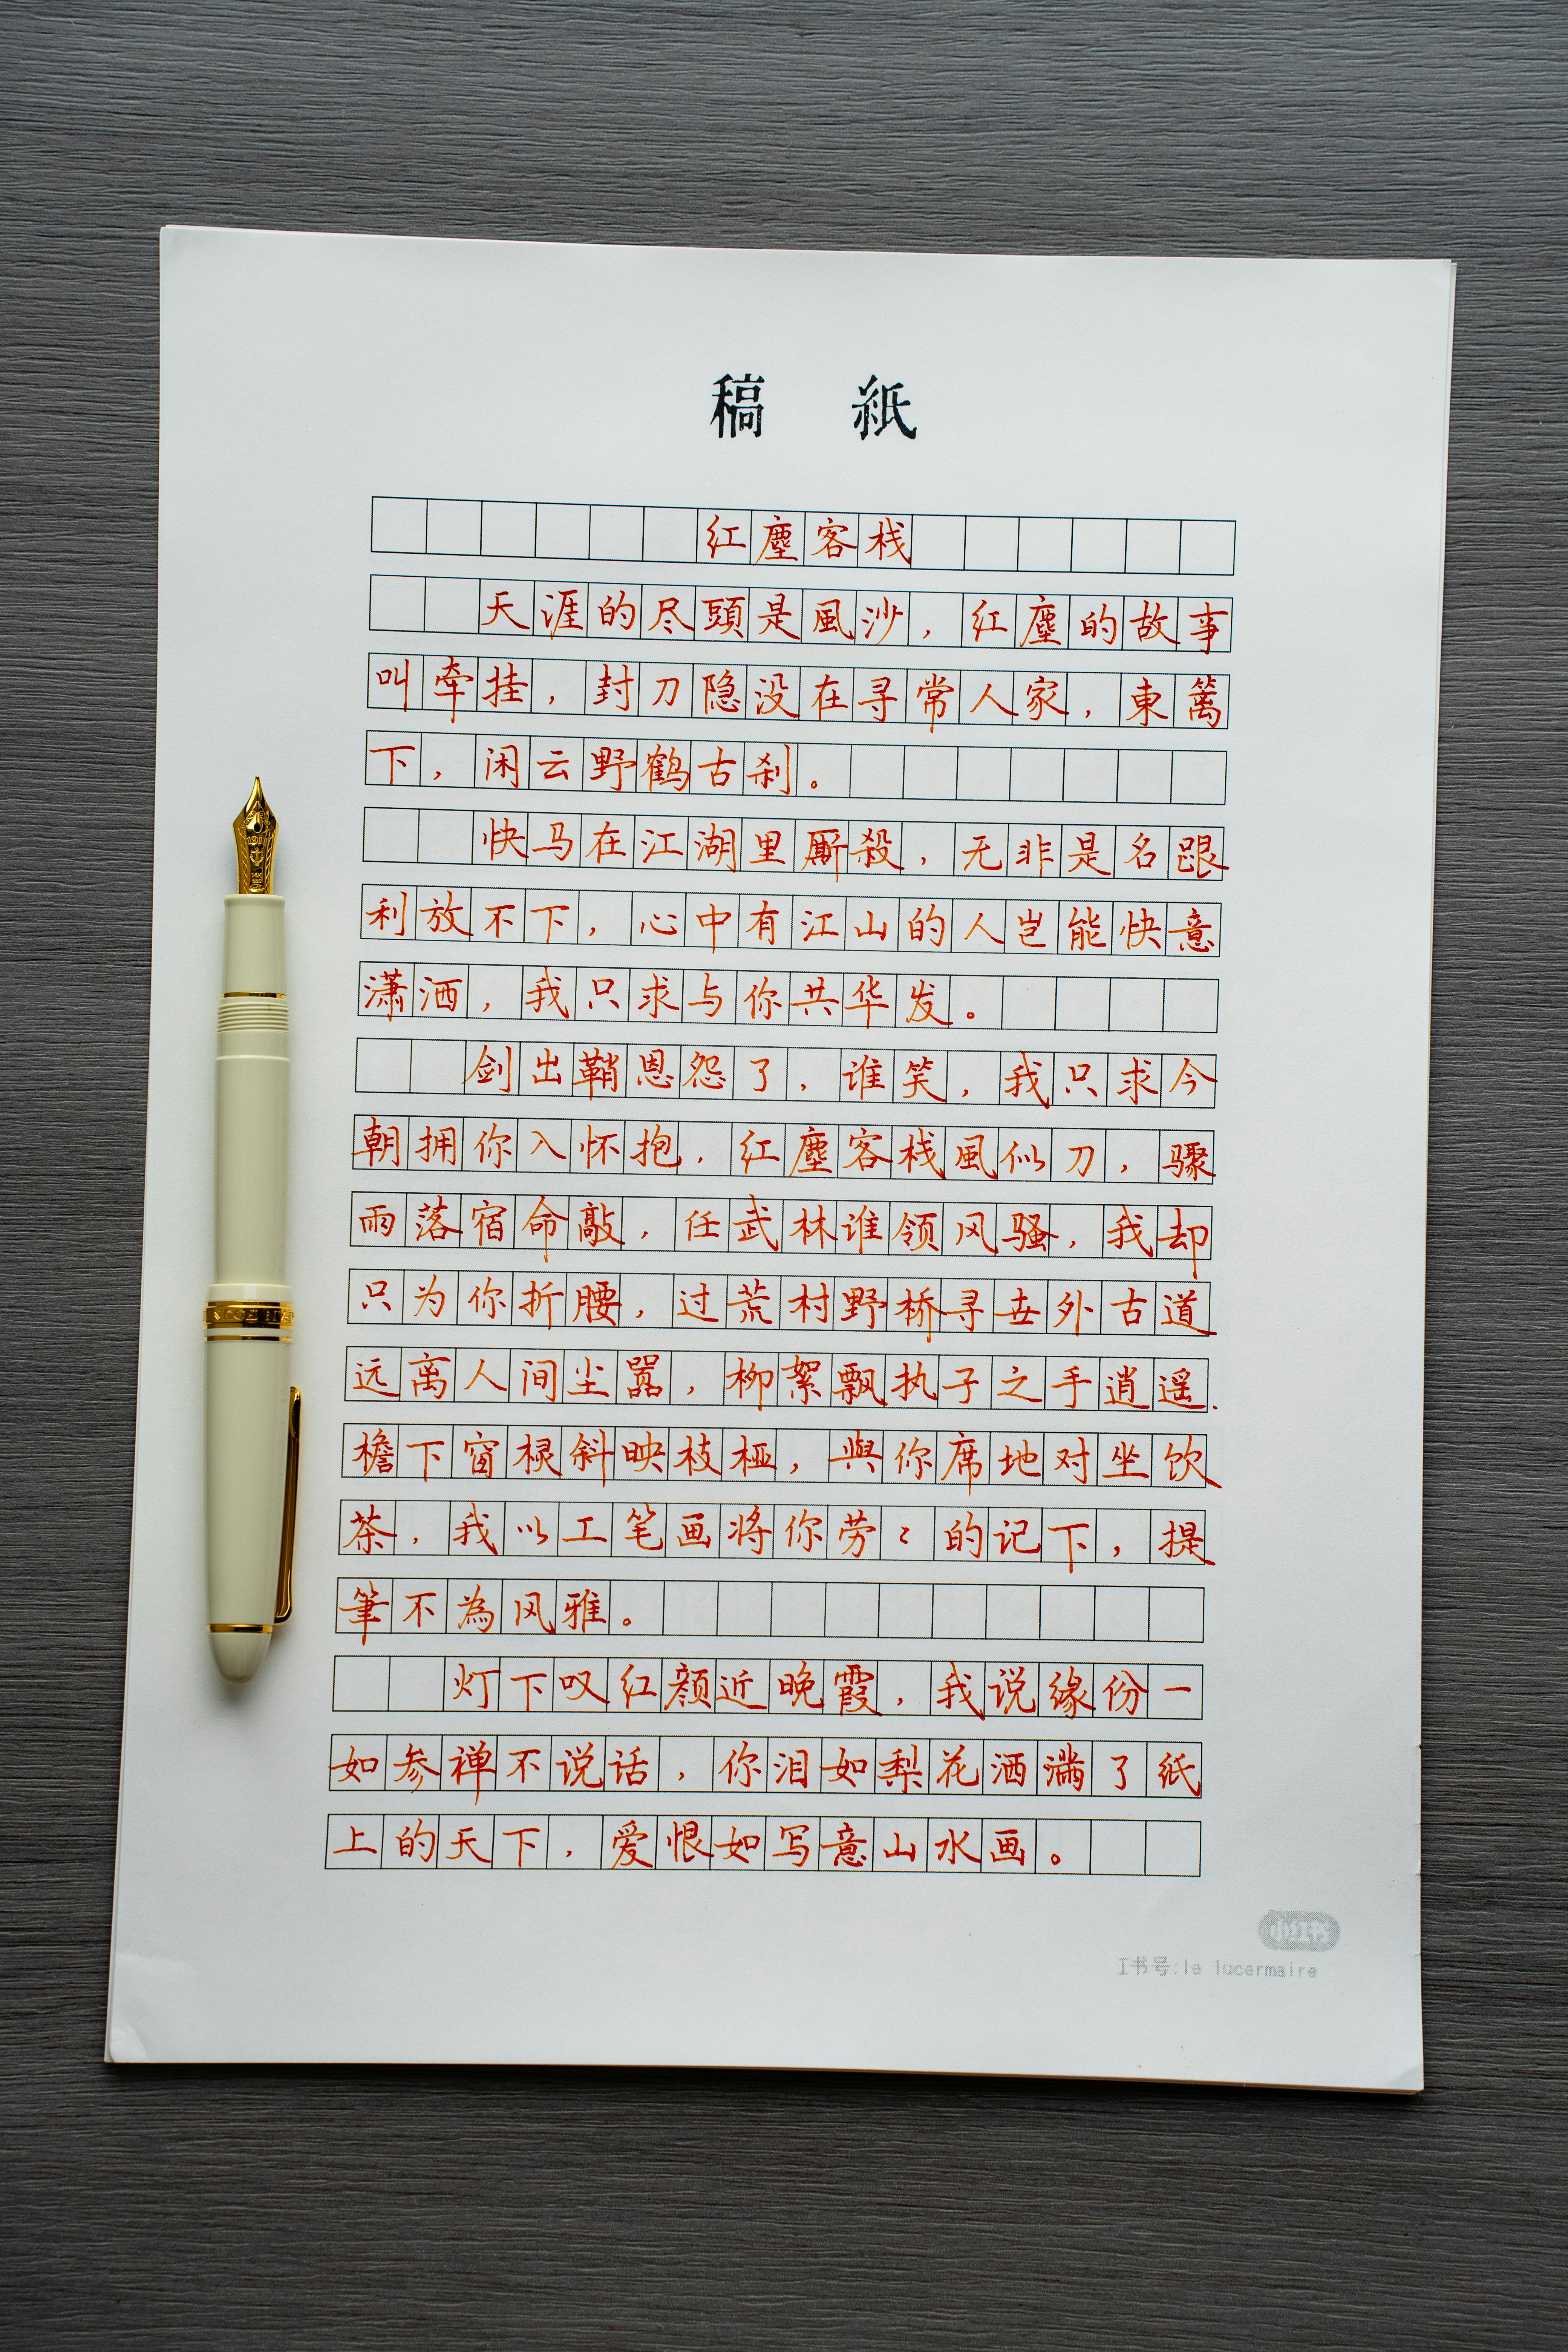 稿 紙
红塵客栈
天涯的尽頭是風沙，红塵的故事
叫牵挂，封刀隐没在寻常人家，東篱
下，闲云野鹤古刹。
快马在江湖里厮殺，无非是名跟
利放不下，心中有江山的人岂能快意
潇洒，我只求与你共华发。
剑出鞘恩怨了，谁笑，我只求今
朝拥你入怀抱，红塵客栈風似刀，骤
雨落宿命敲，任武林谁领风骚，我却
只为你折腰，过荒村野桥寻世外古道
远离人间尘嚣，柳絮飘执子之手逍遥.
檐下窗棂斜映枝桠，與你席地对坐饮
茶，我以工笔画将你劳〻的记下，提
筆不為风雅。
灯下叹红颜近晚霞，我说缘份一
如参禅不说话，你泪如梨花洒满了纸
上的天下，爱恨如写意山水画。
小红书
工书号:le lucermaire